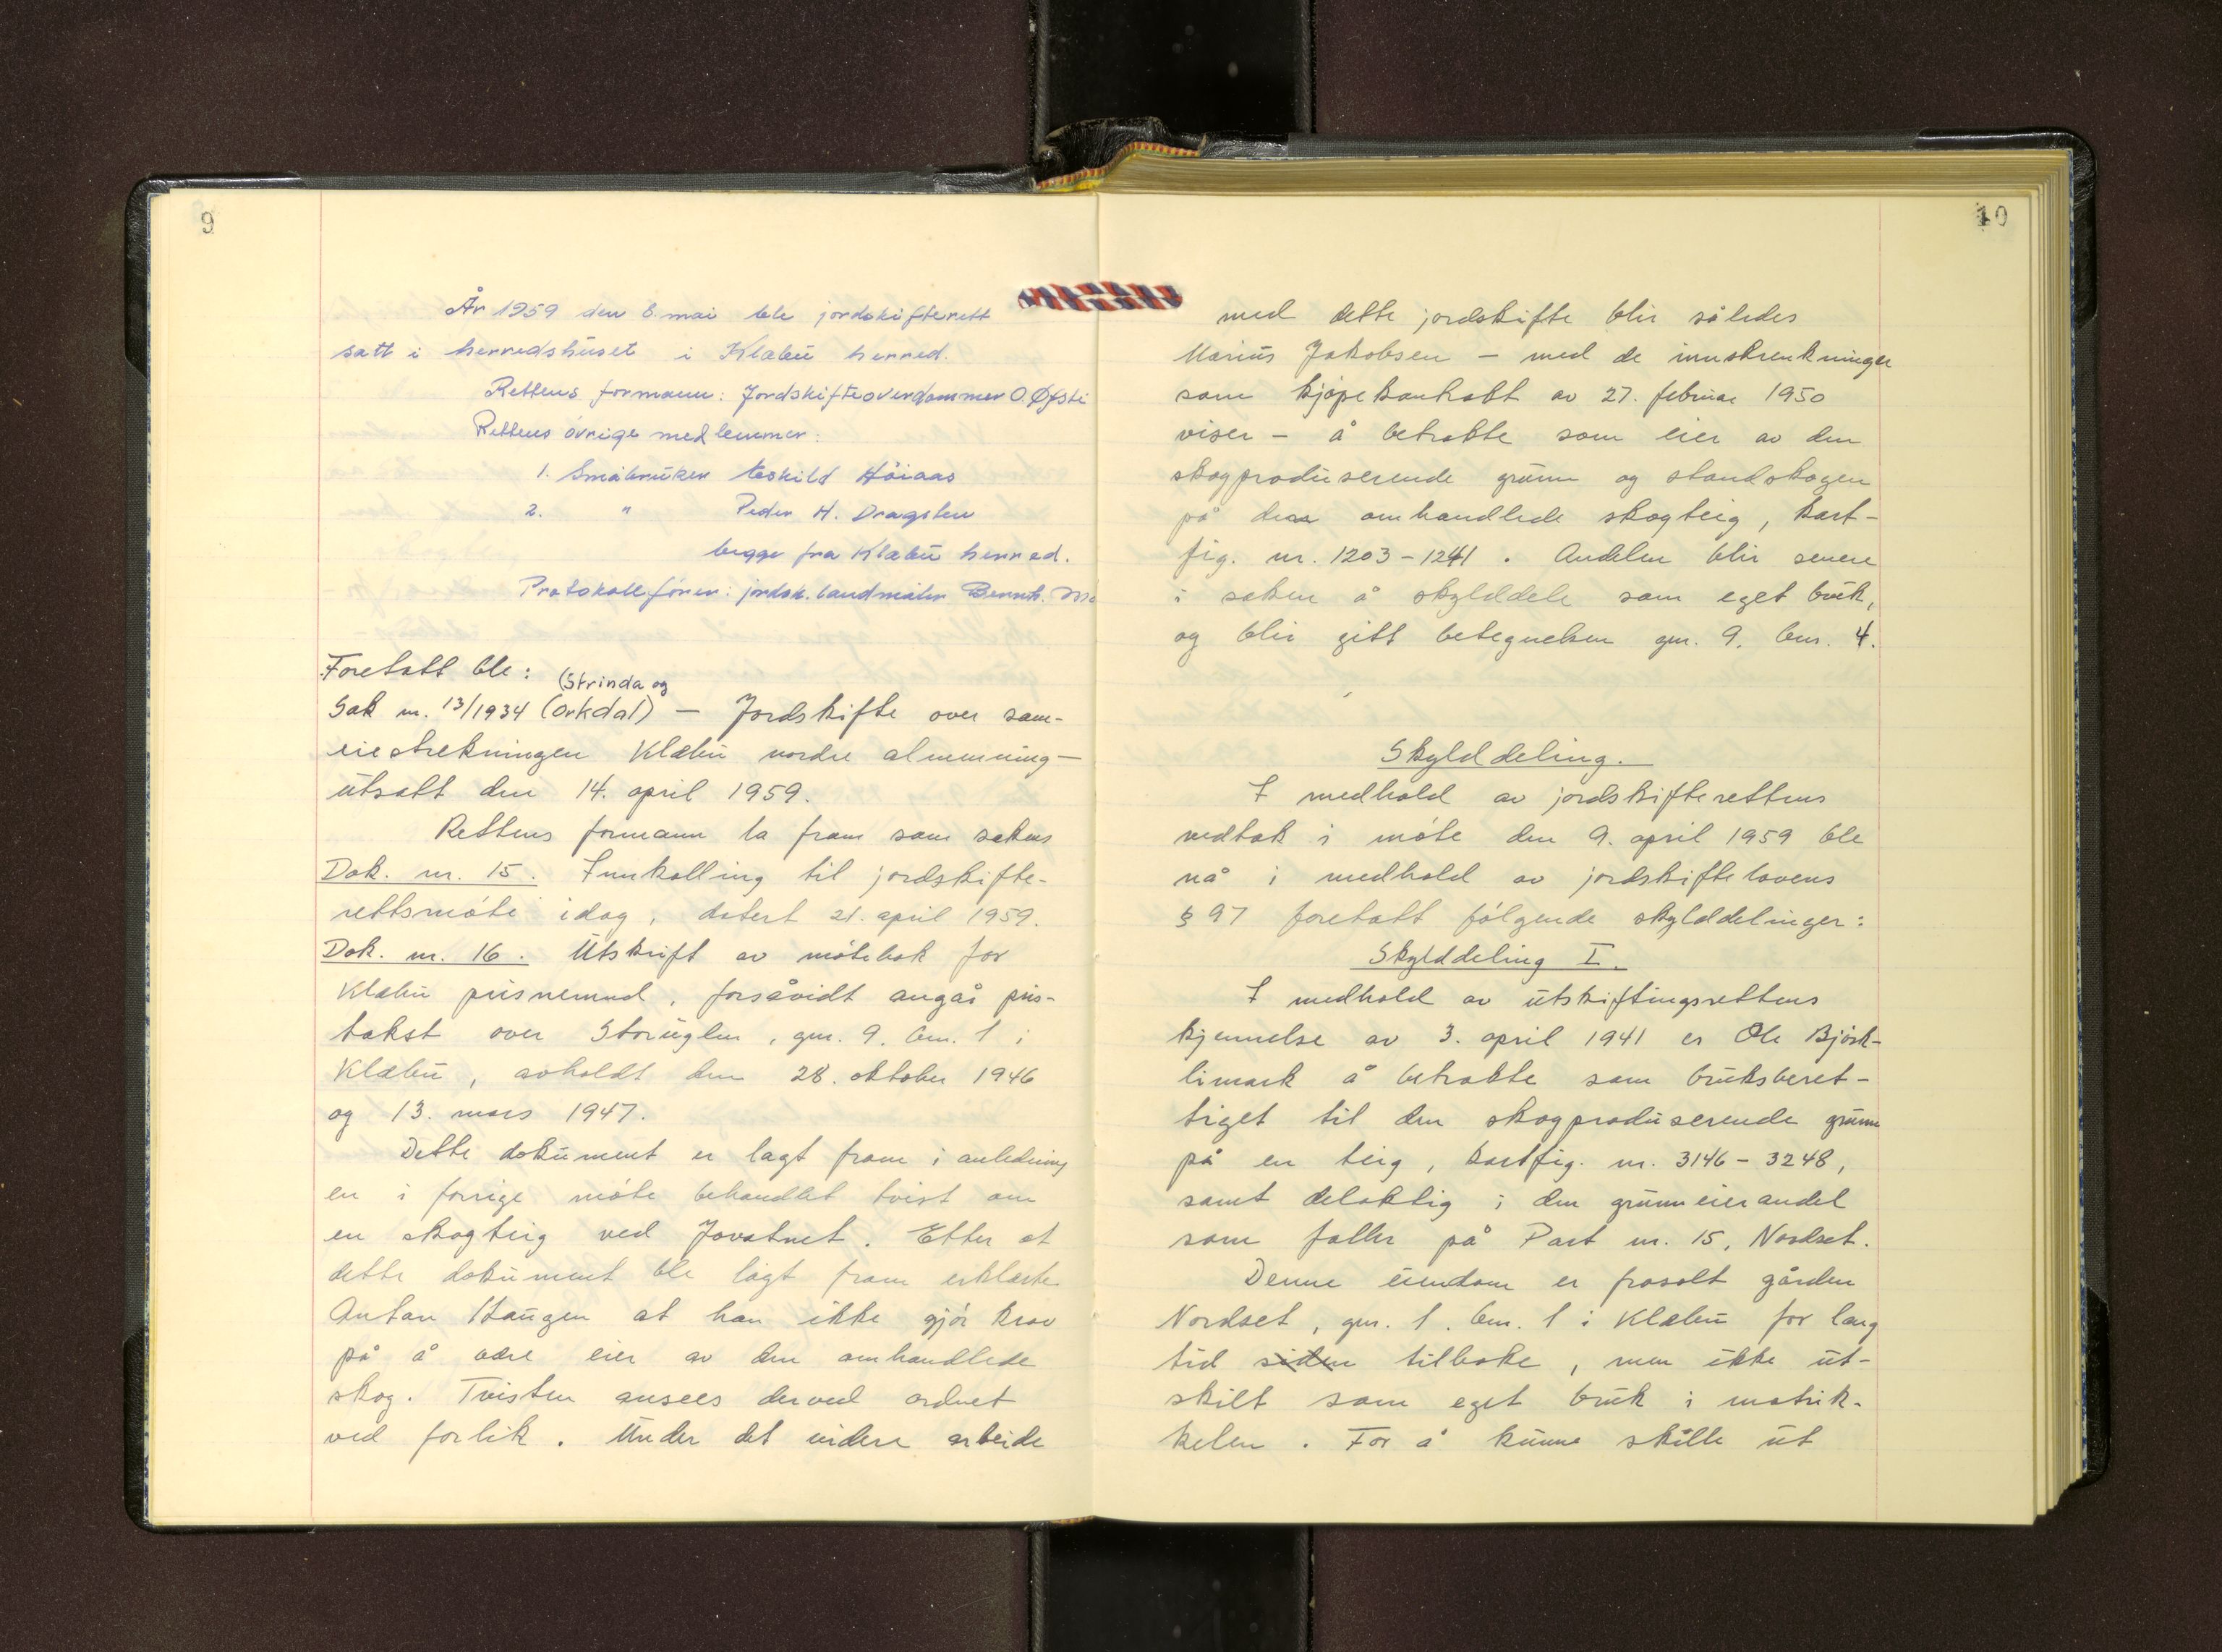 9
År 1959 den 8. mai ble jordskifterett
satt i herredshuset i Klæbu herred.
Rettens formann: Jordskifteoverdommer O. Øfsti
Rettens øvrige medlemmer:
1. Småbruker Eskild Höiaas
2. " Peder H. Dragsten
begge fra Klæbu herred.
Protokollfører: jordsk. landmåler Bernh.
Foretatt ble:
(Strinda og
Sak nr. 13/1934 (Orkdal) – Jordskifte over sam-
eiestrekningen Klæbu nordre almenning –
utsatt den 14. april 1959.
Rettens formann la fram som sakens
Dok. nr. 15. Innkalling til jordskifte-
rettsmøte idag, datert 21. april 1959.
Dok. nr. 16. Utskrift av møtebok for
Klæbu prisnemnd, forsåvidt angår pris-
takst over Storuglen, gnr. 9. bnr. 1 i
Klæbu, avholdt den 28. oktober 1946
og 13. mars 1947.
Dette dokument er lagt fram i anledning
en i forrige møte behandlet tvist om
en skogteig ved Jovatnet. Etter at
dette dokument ble lagt fram erklærte
Anton Haugen at han ikke gjør krav
på å være eier av den omhandlede
skog. Tvisten ansees derved ordnet
ved forlik. Under det videre arbeide
10
med dette jordskifte blir således
Marius Jakobsen – med de innskrenkninger
som kjøpekontrakt av 27. februar 1950
viser – å betrakte som eier av den
skogproduserende grunn og standskogen
på den omhandlede skogteig, kart-
fig. nr. 1203-1241. Andelen blir senere
i saken å skylddele som eget bruk,
og blir gitt betegnelsen gnr. 9. bnr. 4.
Skylddeling.
I medhold av jordskifterettens
vedtak i møte den 9. april 1959 ble
nå i medhold av jordskiftelovens
§ 97 foretatt følgende skylddelinger:
Skylddeling I.
I medhold av utskiftingsrettens
kjennelse av 3. april 1941 er Ole Bjørk-
limark å betrakte som bruksberet-
tiget til den skogproduserende grunn
på en teig, kartfig. nr. 3146-3248,
samt delaktig i den grunneierandel
som faller på Part nr. 15, Nordset.
Denne eiendom er frasolt gården
Nordset, gnr. 1. bnr. 1 i Klæbu for lang
tid siden tilbake, men ikke ut-
skilt som eget bruk i matrik-
kelen. For å kunne skille ut